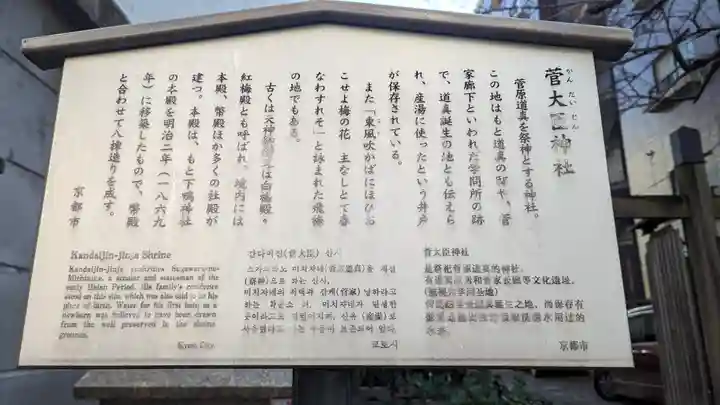 菅大臣神社
かん だい じん
菅原道真を祭神とする神社。
この地はもと道真の邸や、菅
家廊下といわれた学問所の跡
で、道真誕生の地とも伝えら
れ、産湯に使ったという井戸
が保存されている。
また「東風吹かばにほひ
こせよ梅の花 主なしとて春
なわすれそ」と詠まれた飛梅
の地でもある。
古くは天神 は白梅殿、
紅梅殿とも呼ばれ、境内には
本殿、幣殿ほか多くの社殿が
建つ。本殿は、もと下鴨神社
の本殿を明治二年(一八六九
年)に移築したもので、幣殿
と合わせて八棟造りを成す。
京都市
Kandaijin-jinja Shrine
Kandaijin-jinja enshrines Sugawara-no-
Michizane, a scholar and statesman of the
early Heian Period. His family's residence
stood on this site, which was also said to be his
place of birth. Water for his first bath as a
newborn was believed to have been drawn
from the well preserved in the shrine
grounds.
Kyoto City
간다이진(菅大臣) 신사
스가와라노 미치자네(菅原道真)을 제신
(祭神)으로 하는 신사.
미치자네의 저택과 간케(菅家)
하는 학문소 미치자네가 탄생한
곳이라고도
사용했다고 하는 우물이 보존되어 있다.
교토시
菅大臣神社
是祭祀菅原道真的神社。
有道真 和菅家 等文化遗址。
道真诞生之地，尚保存有
水用过的
水井。
京都市